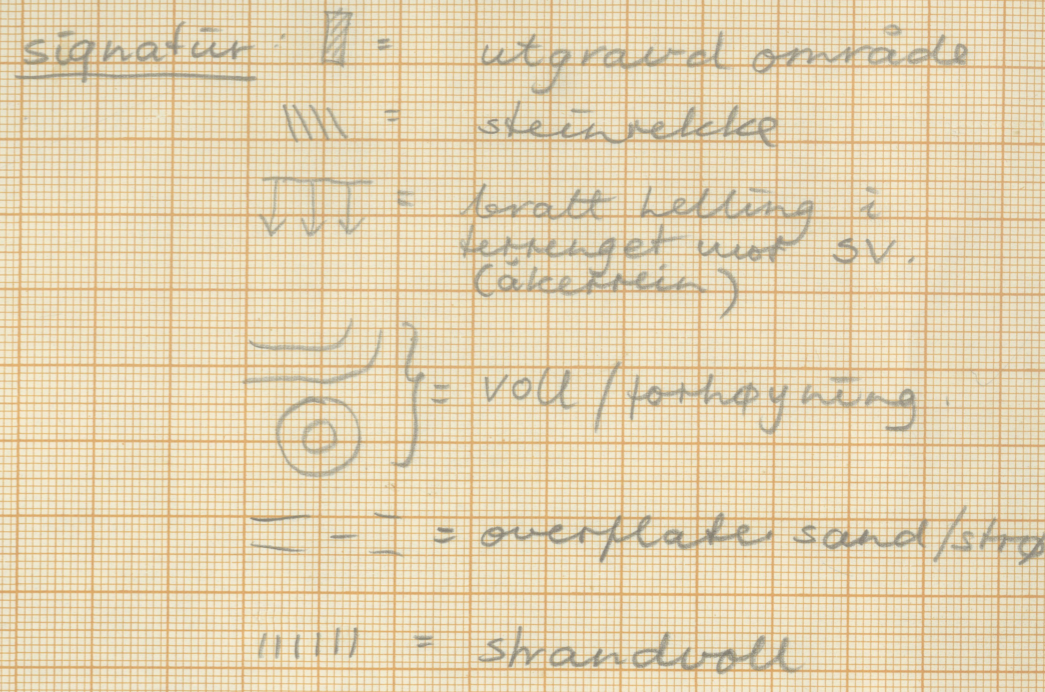 signatur: = utgravd område
= steinrekke
= bratt helling i
terrenget mot SV.
(åkerrein)
= voll / forhøyning.
= overflate. sand/strø
= strandvoll